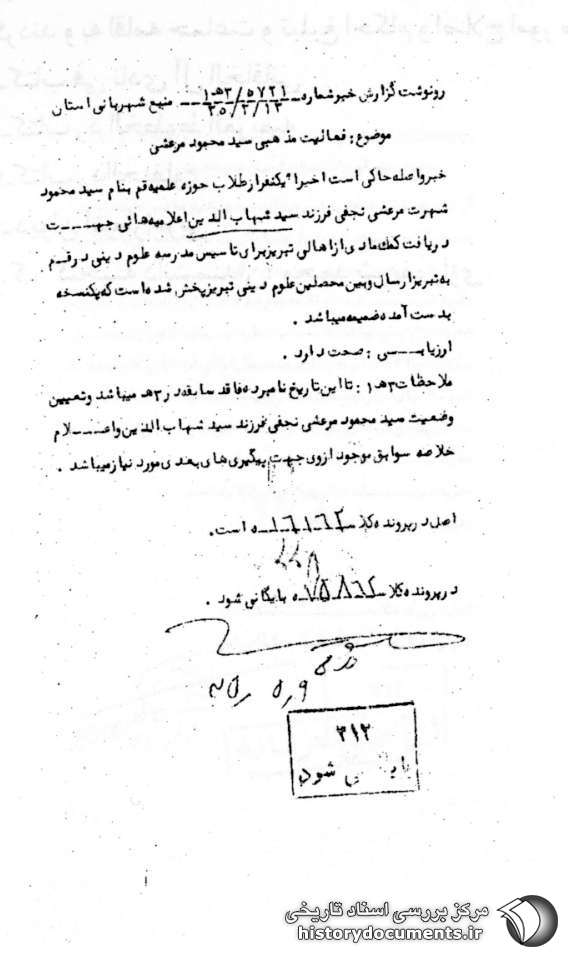 رونوشت گزارش خبر شماره ۵۷۲۱/۳ه‍۱ منبع شهربانی استان
۳۵/۲/۱۳
موضوع: فعالیت مذهبی سید محمود مرعشی
خبر واصله حاکی است اخیرا" یکنفر از طلاب حوزه علمیه قم بنام سید محمود
شهرت مرعشی نجفی فرزند سید شهاب الدین اعلامیه هائی جهـــت
دریافت کمک مادی از اهالی تبریز برای تاسیس مدرسه علوم دینی در قم
به تبریز ارسال و بین محصلین علوم دینی تبریز پخش شده است که یکنسخه
بدست آمده ضمیمه میباشد .
ارزیابـــی : صحت دارد .
ملاحظات ۳ه‍۱ : تا این تاریخ نامبرده فاقد سابقه در ۳ه‍ میباشد و تعیین
وضعیت سید محمود مرعشی نجفی فرزند سید شهاب الدین و اعـــلام
خلاصه سوابق موجود از وی جهت پیگیری های بعدی مورد نیاز میباشد .
اصل در پرونده کلا است .
در پرونده کلا بایگانی شود .
۳۱۲
بایگانی شود
مرکز بررسی اسناد تاریخی
historydocuments.ir